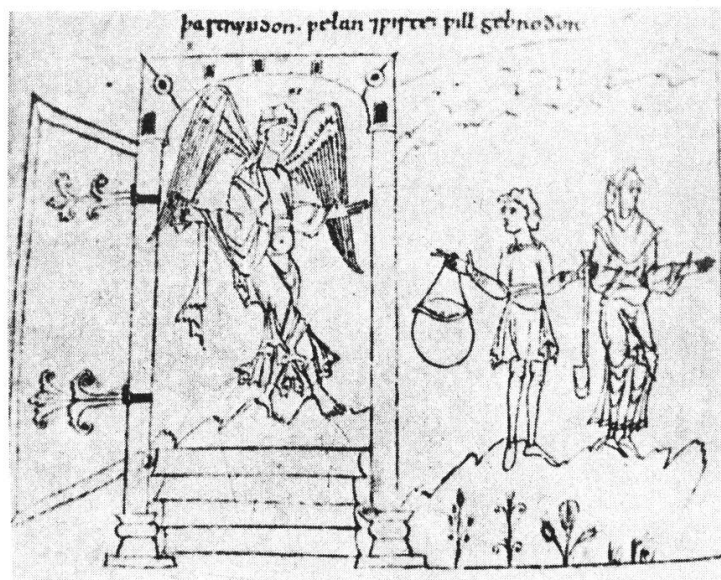 þa strẏndon. ƿelan ⁊ ƿiste, ƿill gebroðor